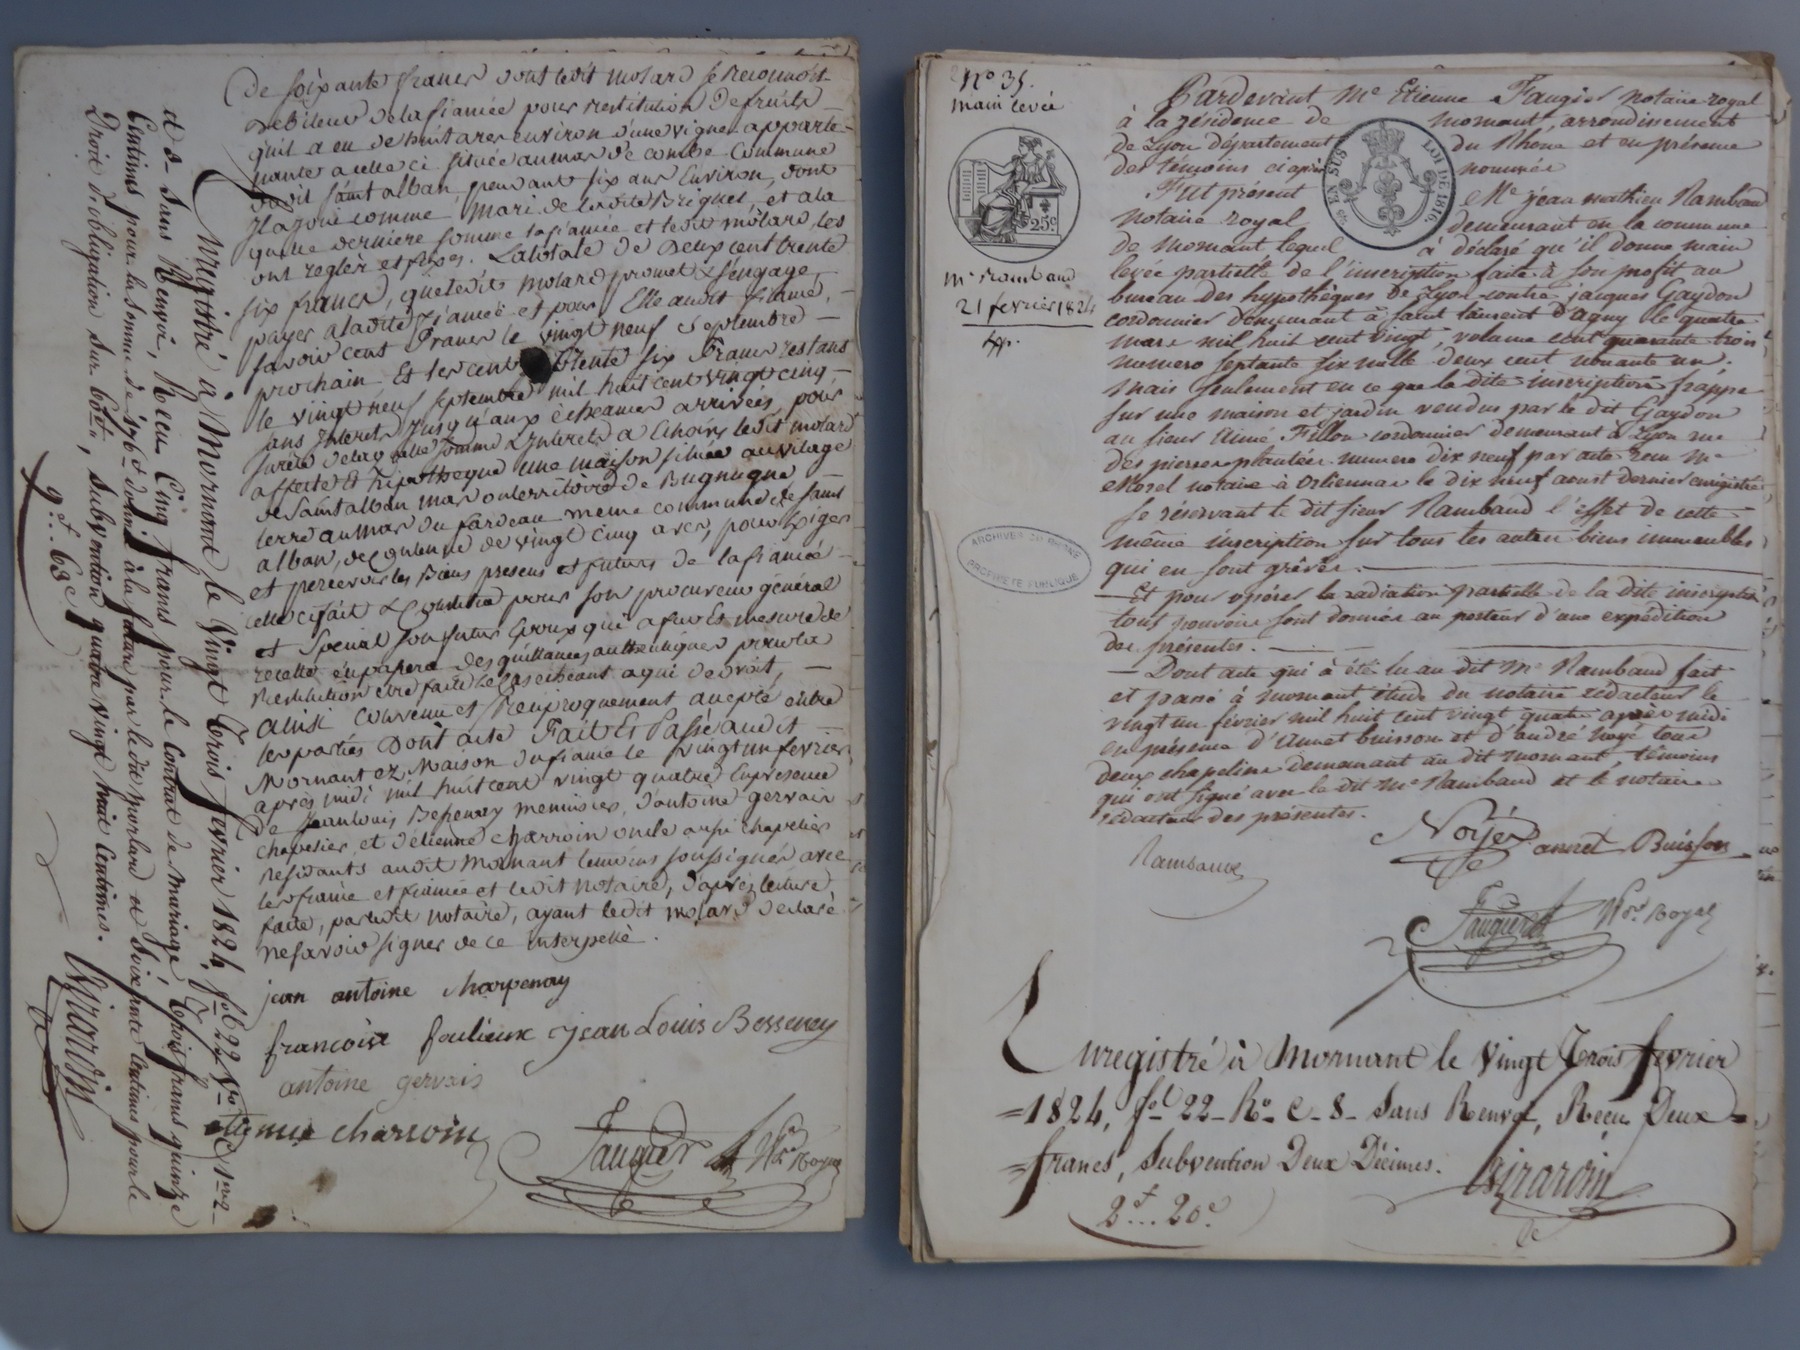 De soixante francs dont ledit molard se Reconnoit
debiteur de la fiancée pour restitution de fruits
quil a eu de huit ares environ d'une vigne apparte-
nante a celle ci située au mas de combe Commune
dudit saint alban, pendant six ans Environ, dont
il a joui comme Mari de ladite Briques, et a la
quelle derniere somme la fiancée et ledit molard, les
ont reglés et fixés. La totale de Deux cent trente
six francs, que ledit molard promet & s'engage
payer a ladite fiancée et pour Elle audit fiancé,
savoir cent francs le vingt neuf septembre
prochain Et les cent trente six francs restans
le vingt neuf septembre mil huit cent vingt cinq,
sans Interets jusqu'aux écheances arrivées, pour
sureté de laquelle somme & Interets a Echoirs ledit molard
affecte et hipotheque une maison située au village
de saint alban mas ou territoire de
terre au mas du fardeau meme commune de saint
alban, de Contenue de vingt cinq ares, pour Exiger
et percevoir les Biens presens et futurs de la fiancée
celle ci fait & Constitue pour son procureur général
et Special son futur Epoux qui a fur Et mesure de
recette en passera des quittances authentiques pour la
Restitution etre faite le cas echeant a qui de droit,
ainsi convenu et Reciproquement accepté entre
les parties Dont acte Fait Et Passé audit
Mornant ez Maison du fiancé le vingt un fevrier
après midi mil huit cent vingt quatre En presence
de Jean Louis Besseney menuisier, d'antoine gervais
chapelier, et d'etienne charvoin oncle aussi chapelier
residants audit Mornant temoins soussignés avec
les fiancé et fiancée et ledit notaire, d'après lecture
faite, par ledit notaire, ayant ledit molard declaré
ne savoir signer de ce interpellé.
jean antoine charpenay
françoise foulieux jean Louis Besseney
antoine gervais
etienne charvoin
Faugier Nre Royal
Enregistré à Mornant le Vingt Trois fevrier 1824, fol 22 Vo C 1ere 2
et 3 - Sans Renvoi, Recu Cinq francs pour le Contrat de Mariage Trois francs quinze
Centimes pour la somme de 236f donnée à la future par ledit Morlard et Soixante Centimes pour le
Droit d'obligation sur 60f, subvention quatre vingt huit Centimes.
9f.. 63c
Girardin
No 35.
main levée
25c
EN SUS
LOI DE 1816
Mr Rambaud
21 fevrier 1824
Pardevant Me Etienne Faugier notaire royal
à la résidence de mornant, arrondissement
de Lyon département du Rhone et en présence
des témoins ci après nommés
Fut présent Me jean mathieu Rambaud
notaire royal demeurant en la commune
de mornant lequel à déclaré qu'il donne main
levée partielle de l'inscription faite à son profit au
bureau des hypothèques de Lyon contre jacques Gaydon
cordonnier demeurant à saint laurent d'agny le quatre
mars mil huit cent vingt, volume cent quarante trois
numero septante six mille deux cent nonante un,
mais seulement en ce que la dite inscription frappe
sur une maison et jardin vendus par le dit Gaydon
au sieur Aimé Fillon cordonnier demeurant à Lyon rue
des pierres plantées numero dix neuf par acte reçu Me
Morel notaire à Orliennas le dix neuf aoust dernier enregistré,
se réservant le dit sieur Rambaud l'effet de cette
même inscription sur tous les autres biens immeubles
qui en sont grévés.
ARCHIVES DU RHONE
PROPRIETE PUBLIQUE
Et pour opérer la radiation partielle de la dite inscription
tous pouvoirs sont donnés au porteur d'une expédition
des présentes.
Dont acte qui à été lu au dit Me Rambaud fait
et passé à mornant étude du notaire rédacteur le
vingt un février mil huit cent vingt quatre après midi
en présence d'annet buisson et d'andré noyé tous
deux chapeliers demeurant au dit mornant, témoins
qui ont signé avec le dit Me Rambaud et le notaire
rédacteur des présentes.
Noyer
annet Buisson
Rambaud
Faugier Nre Royal
Enregistré à Mornant le Vingt Trois fevrier
=1824, fol 22 Ro C 8 Sans Renvoi, Recu Deux=
=francs, Subvention Deux Décimes.
Girardin
2f... 20c